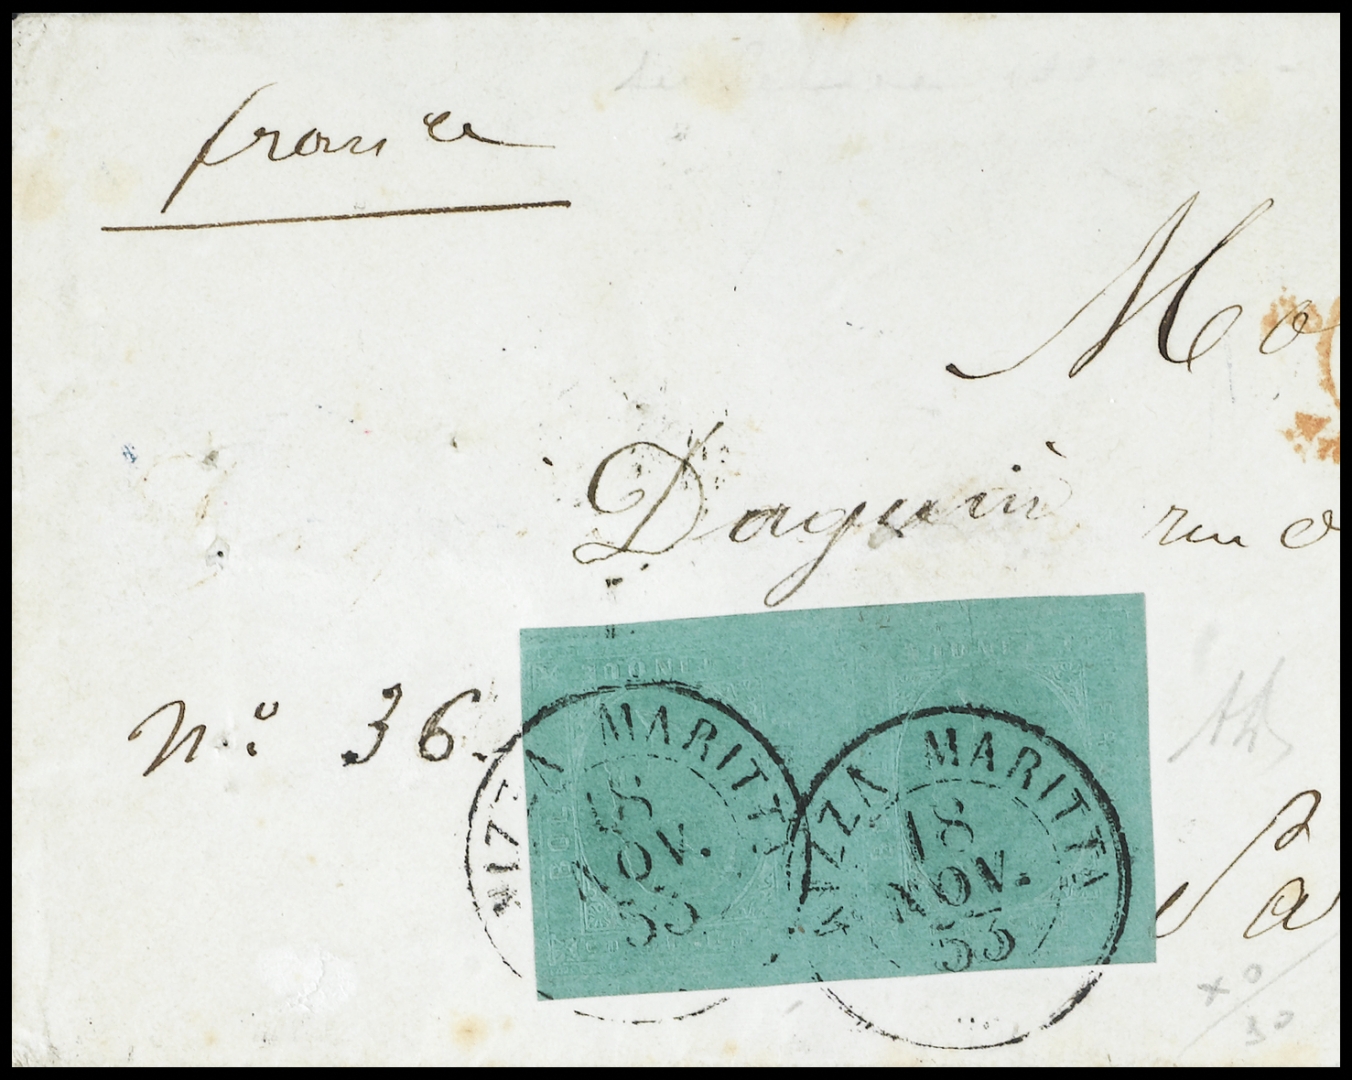 france
Mo
Daguin rue d
n.º 36.
NIZZA MARITTA
18
NOV.
53
NIZZA MARITTA
18
NOV.
53
Pa
30